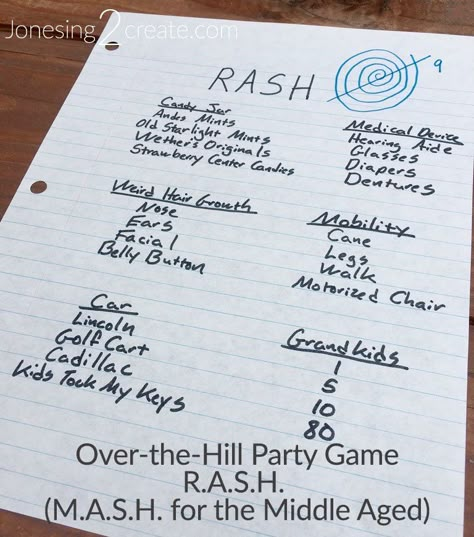 Jonesing2create.com
RASH
9
Candy Jar
Andes Mints
Old Starlight Mints
Wether's Originals
Strawberry Center Candies
Medical Device
Hearing Aide
Glasses
Diapers
Dentures
Weird Hair Growth
Nose
Ears
Facial
Belly Button
Mobility
Cane
Legs
Walk
Motorized Chair
Car
Lincoln
Golf Cart
Cadillac
Kids Took My Keys
Grandkids
1
5
10
80
Over-the-Hill Party Game
R.A.S.H.
(M.A.S.H. for the Middle Aged)